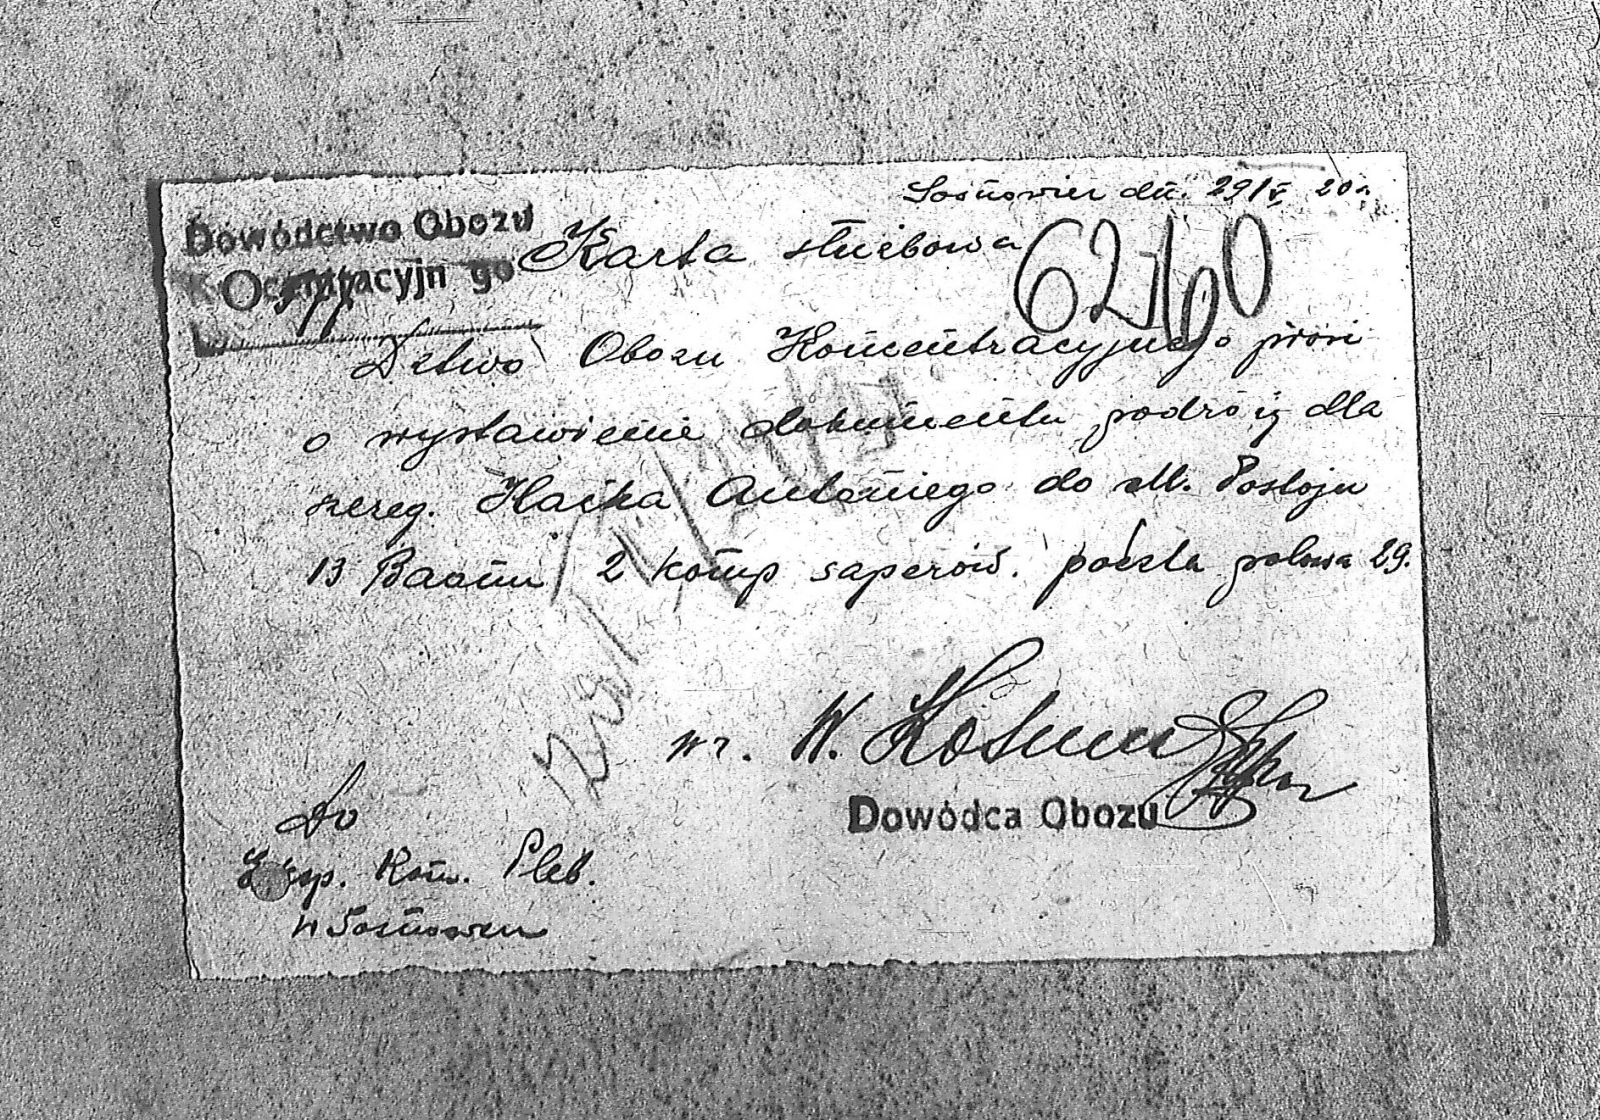 Sosnowiec dn. 29/V 20 r.
Dowództwo Obozu
Karta służbowa
6260
Dctwo Obozu Koncentracyjnego prosi
o wystawienie dokumentu podróży dla
szereg. Haśka Antoniego do M. Postoju
13 Baonu 2 komp saperów. poczta polowa 29.
wz. W.
Dowódca Obozu
Do
Eksp. Kom. Pleb.
w Sosnowcu